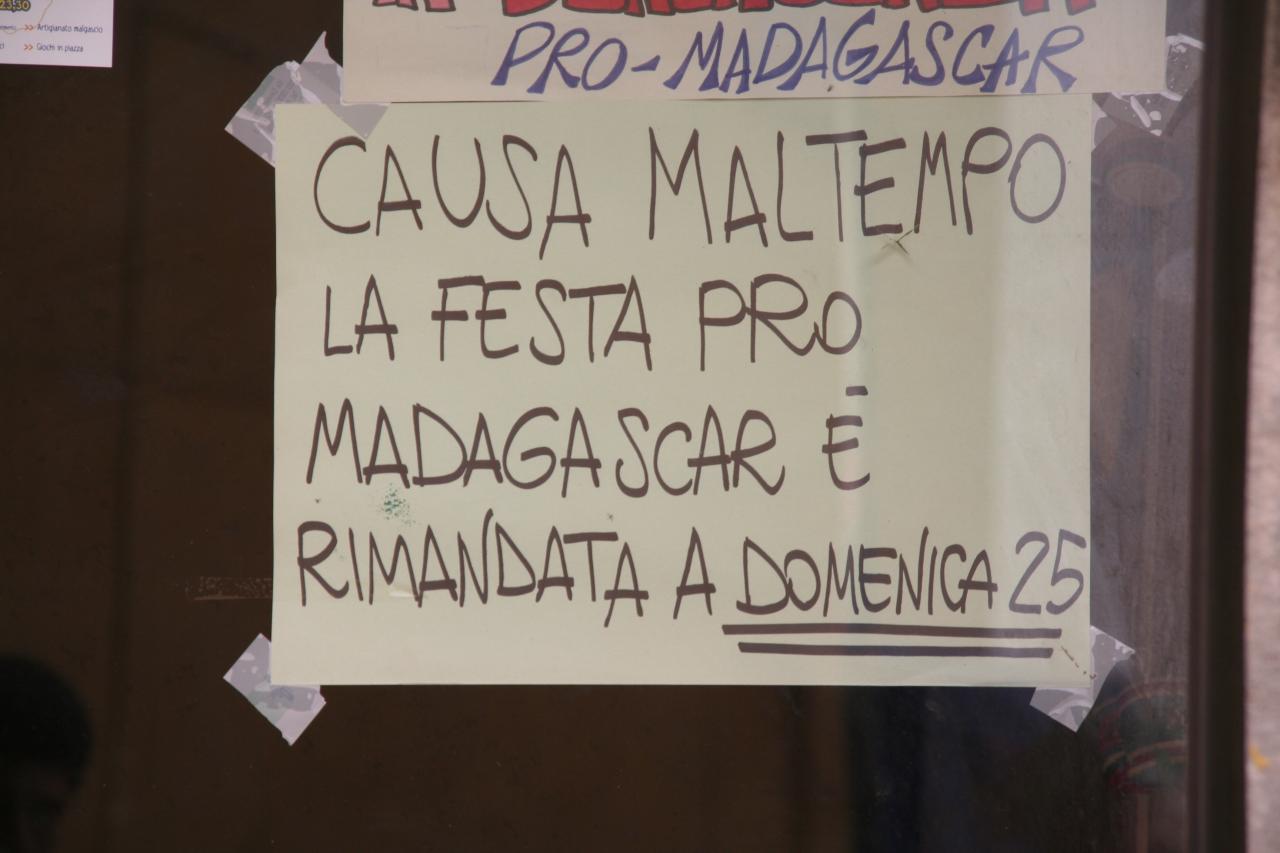 23:30
>> Artigianato malgascio
>> Giochi in piazza
PRO-MADAGASCAR
CAUSA MALTEMPO
LA FESTA PRO
MADAGASCAR É
RIMANDATA A DOMENICA 25